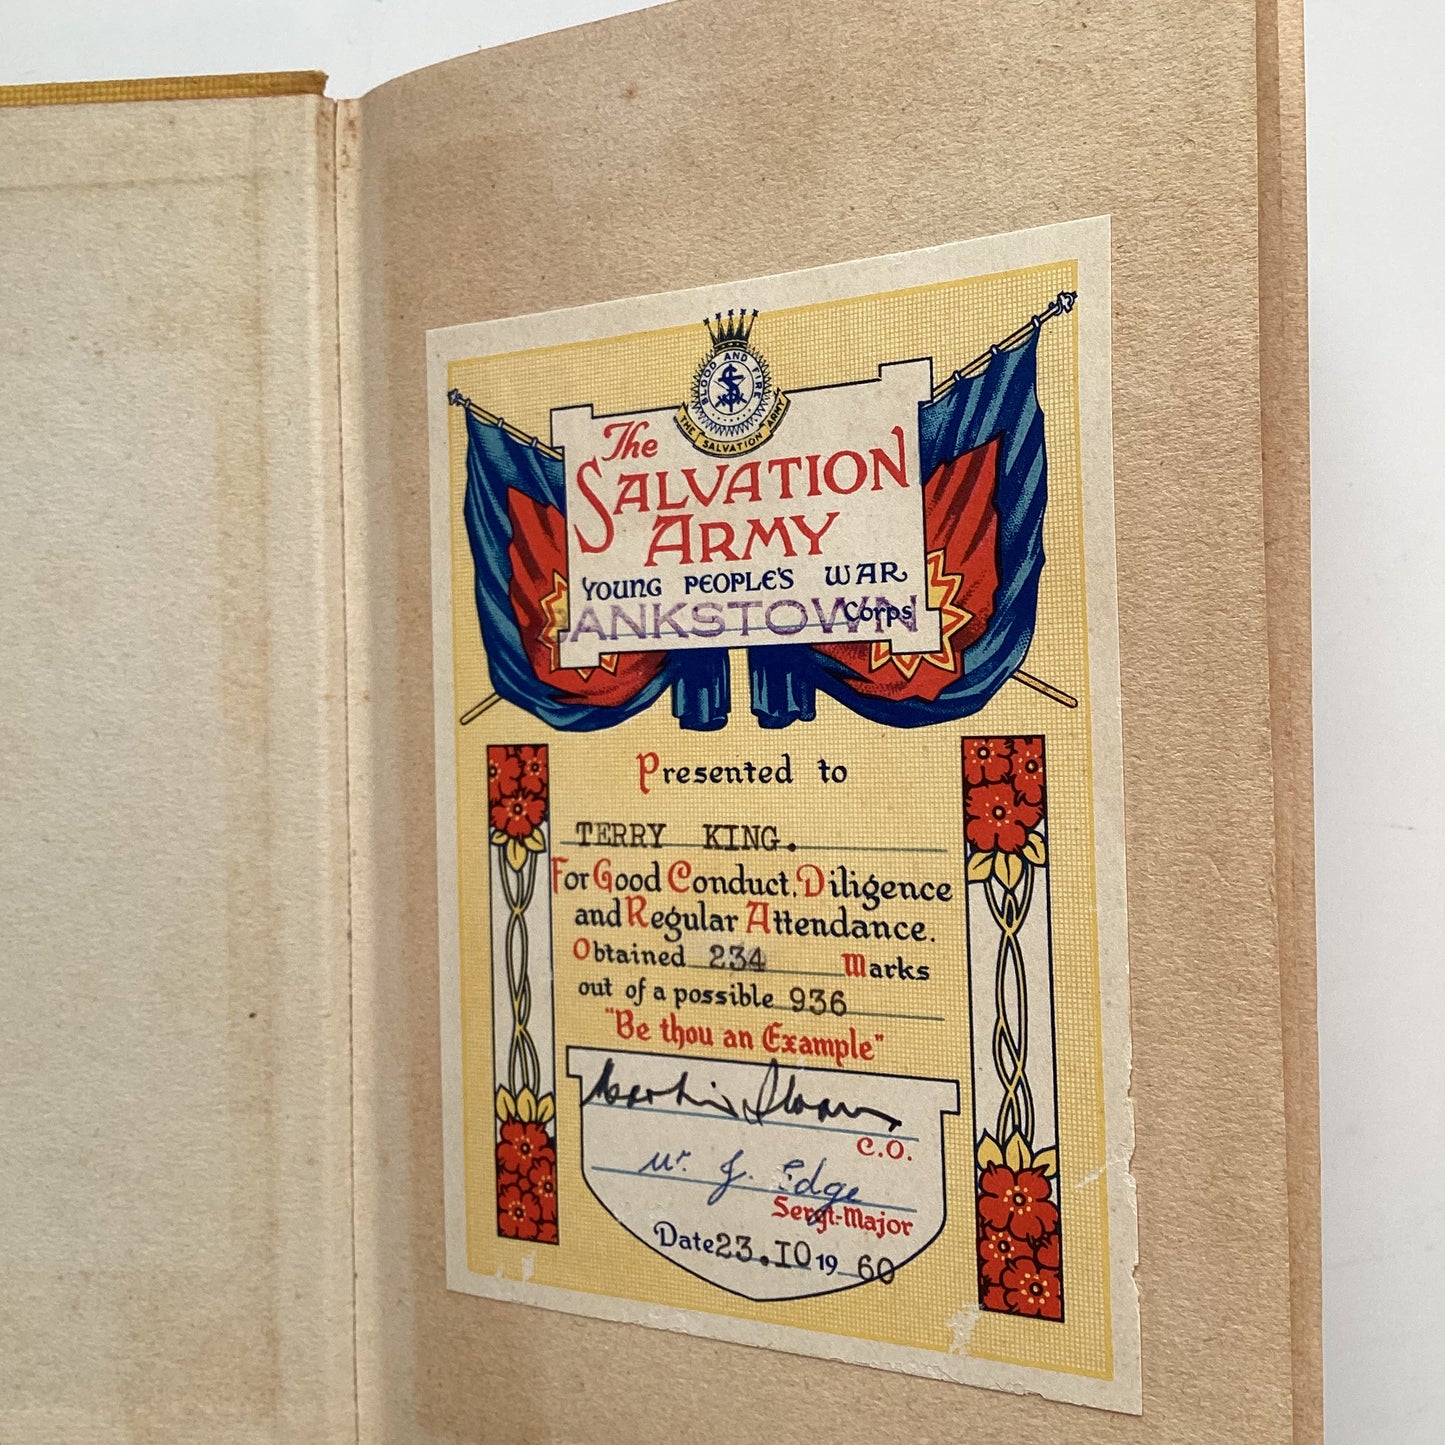 BLOOD AND FIRE
THE SALVATION ARMY
The
SALVATION
ARMY
YOUNG PEOPLE'S WAR
BANKSTOWN Corps
Presented to
TERRY KING.
For Good Conduct, Diligence
and Regular Attendance.
Obtained 234 Marks
out of a possible 936
"Be thou an Example"
C.O.
W. J. Edge
Sergt.-Major
Date 23.IO 19 60